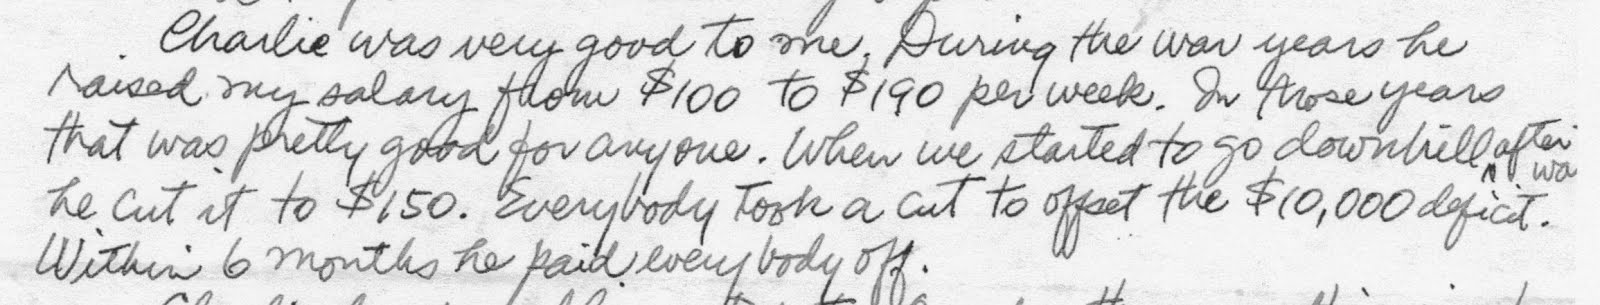 Charlie was very good to me. During the war years he
raised my salary from $100 to $190 per week. In those years
that was pretty good for anyone. When we started to go downhill after wa
he cut it to $150. Everybody took a cut to offset the $10,000 deficit.
Within 6 months he paid everybody off.